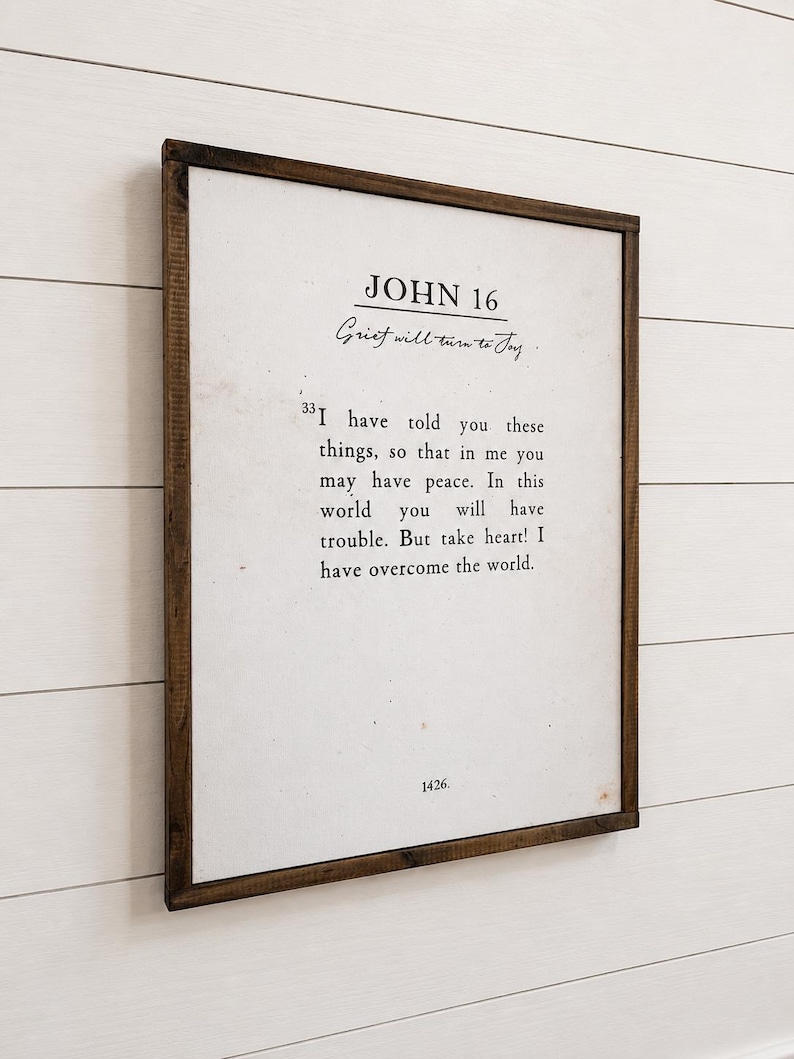 JOHN 16
Grief will turn to Joy
33 I have told you these
things, so that in me you
may have peace. In this
world you will have
trouble. But take heart! I
have overcome the world.
1426.